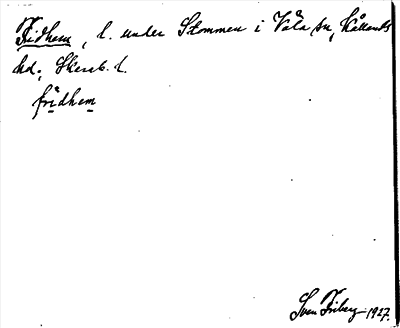 Fridhem, l. under Stommen i Våla sn, Kållands
hd, Skarab. l.
fridhem
Sven Friberg 1927.